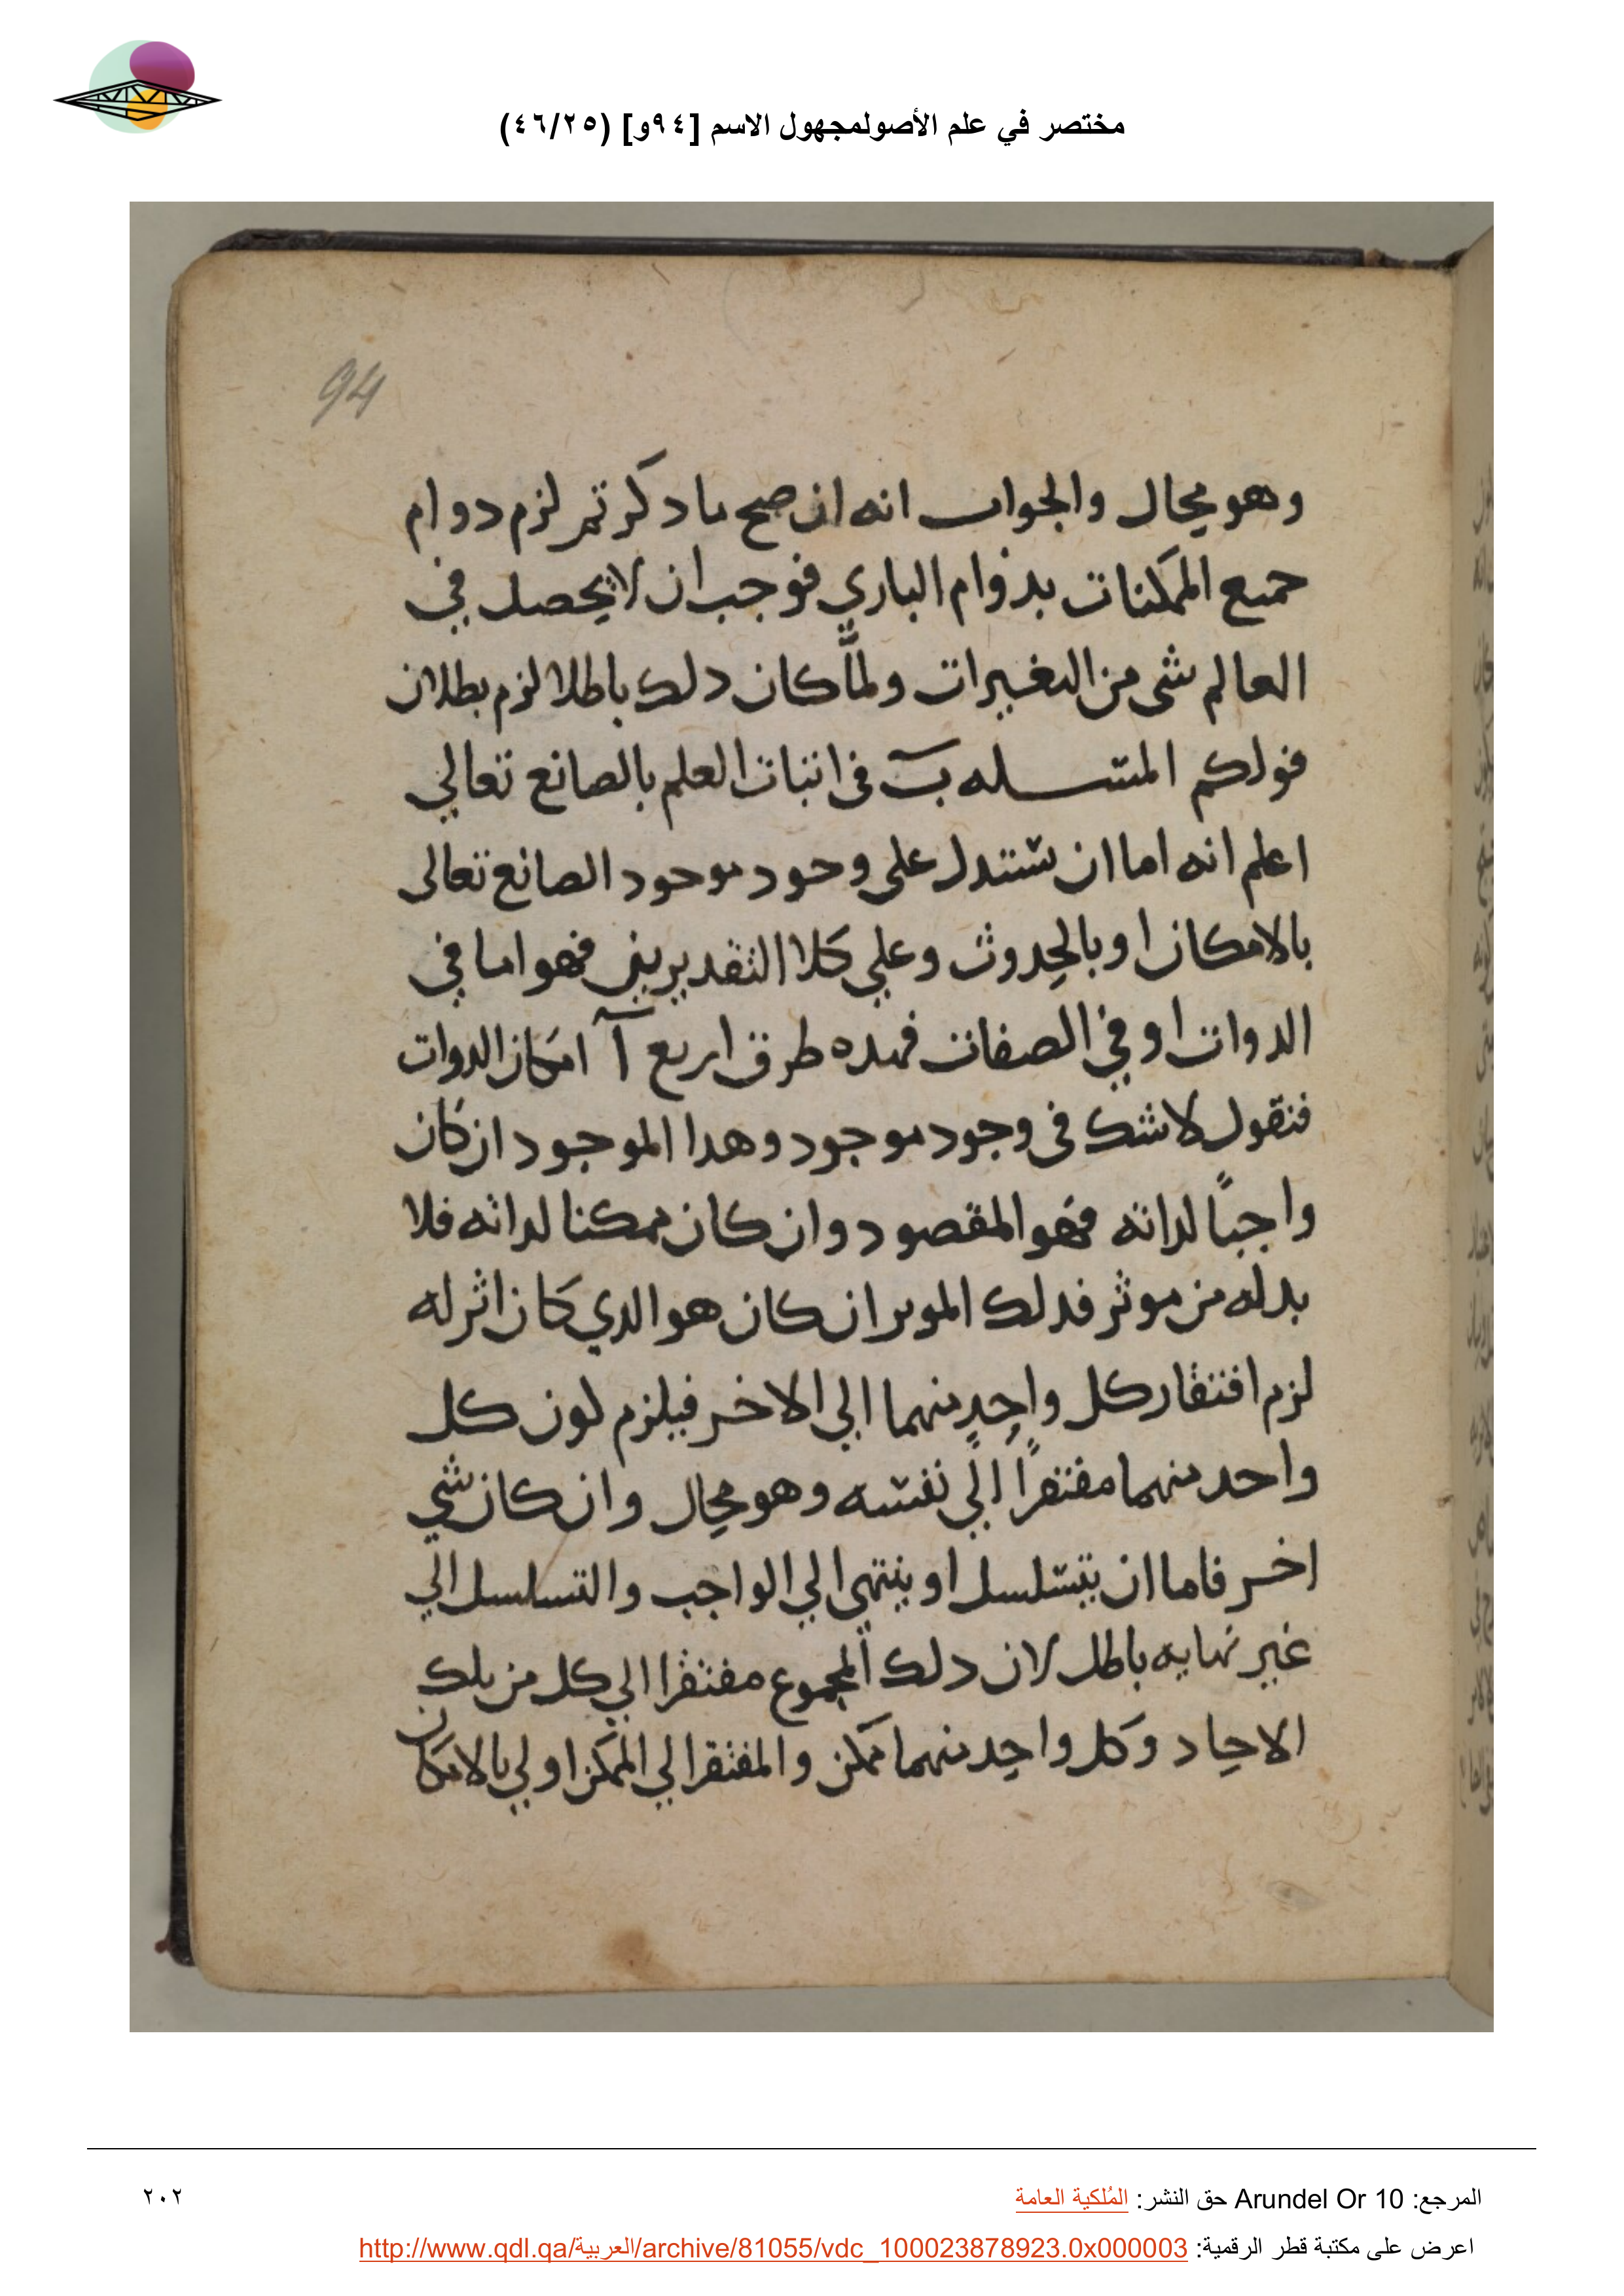 مختصر في علم الأصولمجهول الاسم [٩٤و] (٤٦/٢٥)
94
وهو محال والجواب انه ان صح ما دكرتم لزم دوام
جميع الممكنات بدوام الباري فوجب ان لا يحصل في
العالم شى من التغيرات ولمّا كان دلك باطلا لزم بطلان
قولكم المسله ب في اثبات العلم بالصانع تعالي
اعلم انه اما ان ستدل على وجود موجود الصانع تعالى
بالامكان او بالحدوث وعلي كلا التقديرين فهو اما في
الدوات او في الصفات فهده طرق اربع آ امكان الدوات
فنقول لا شك في وجود موجود وهدا الموجود ان كان
واجبًا لداته فهو المقصود وان كان ممكنا لداته فلا
بد له من موثر فدلك الموثر ان كان هو الدي كان اثر له
لزم افتقار كل واحدٍ منهما الي الاخر فيلزم كون كل
واحد منهما مفتقرًا الي نفسه وهو محال وان كان شي
اخر فاما ان يتسلسل او ينتهى الي الواجب والتسلسل الي
غير نهايه باطل لان دلك المجموع مفتقرا الي كل من تلك
الاحاد وكل واحد منهما ممكن والمفتقر الي الممكن اولي بالامكان
المرجع: Arundel Or 10 حق النشر: المُلكية العامة
٢٠٢
اعرض على مكتبة قطر الرقمية: http://www.qdl.qa/العربية/archive/81055/vdc_100023878923.0x000003